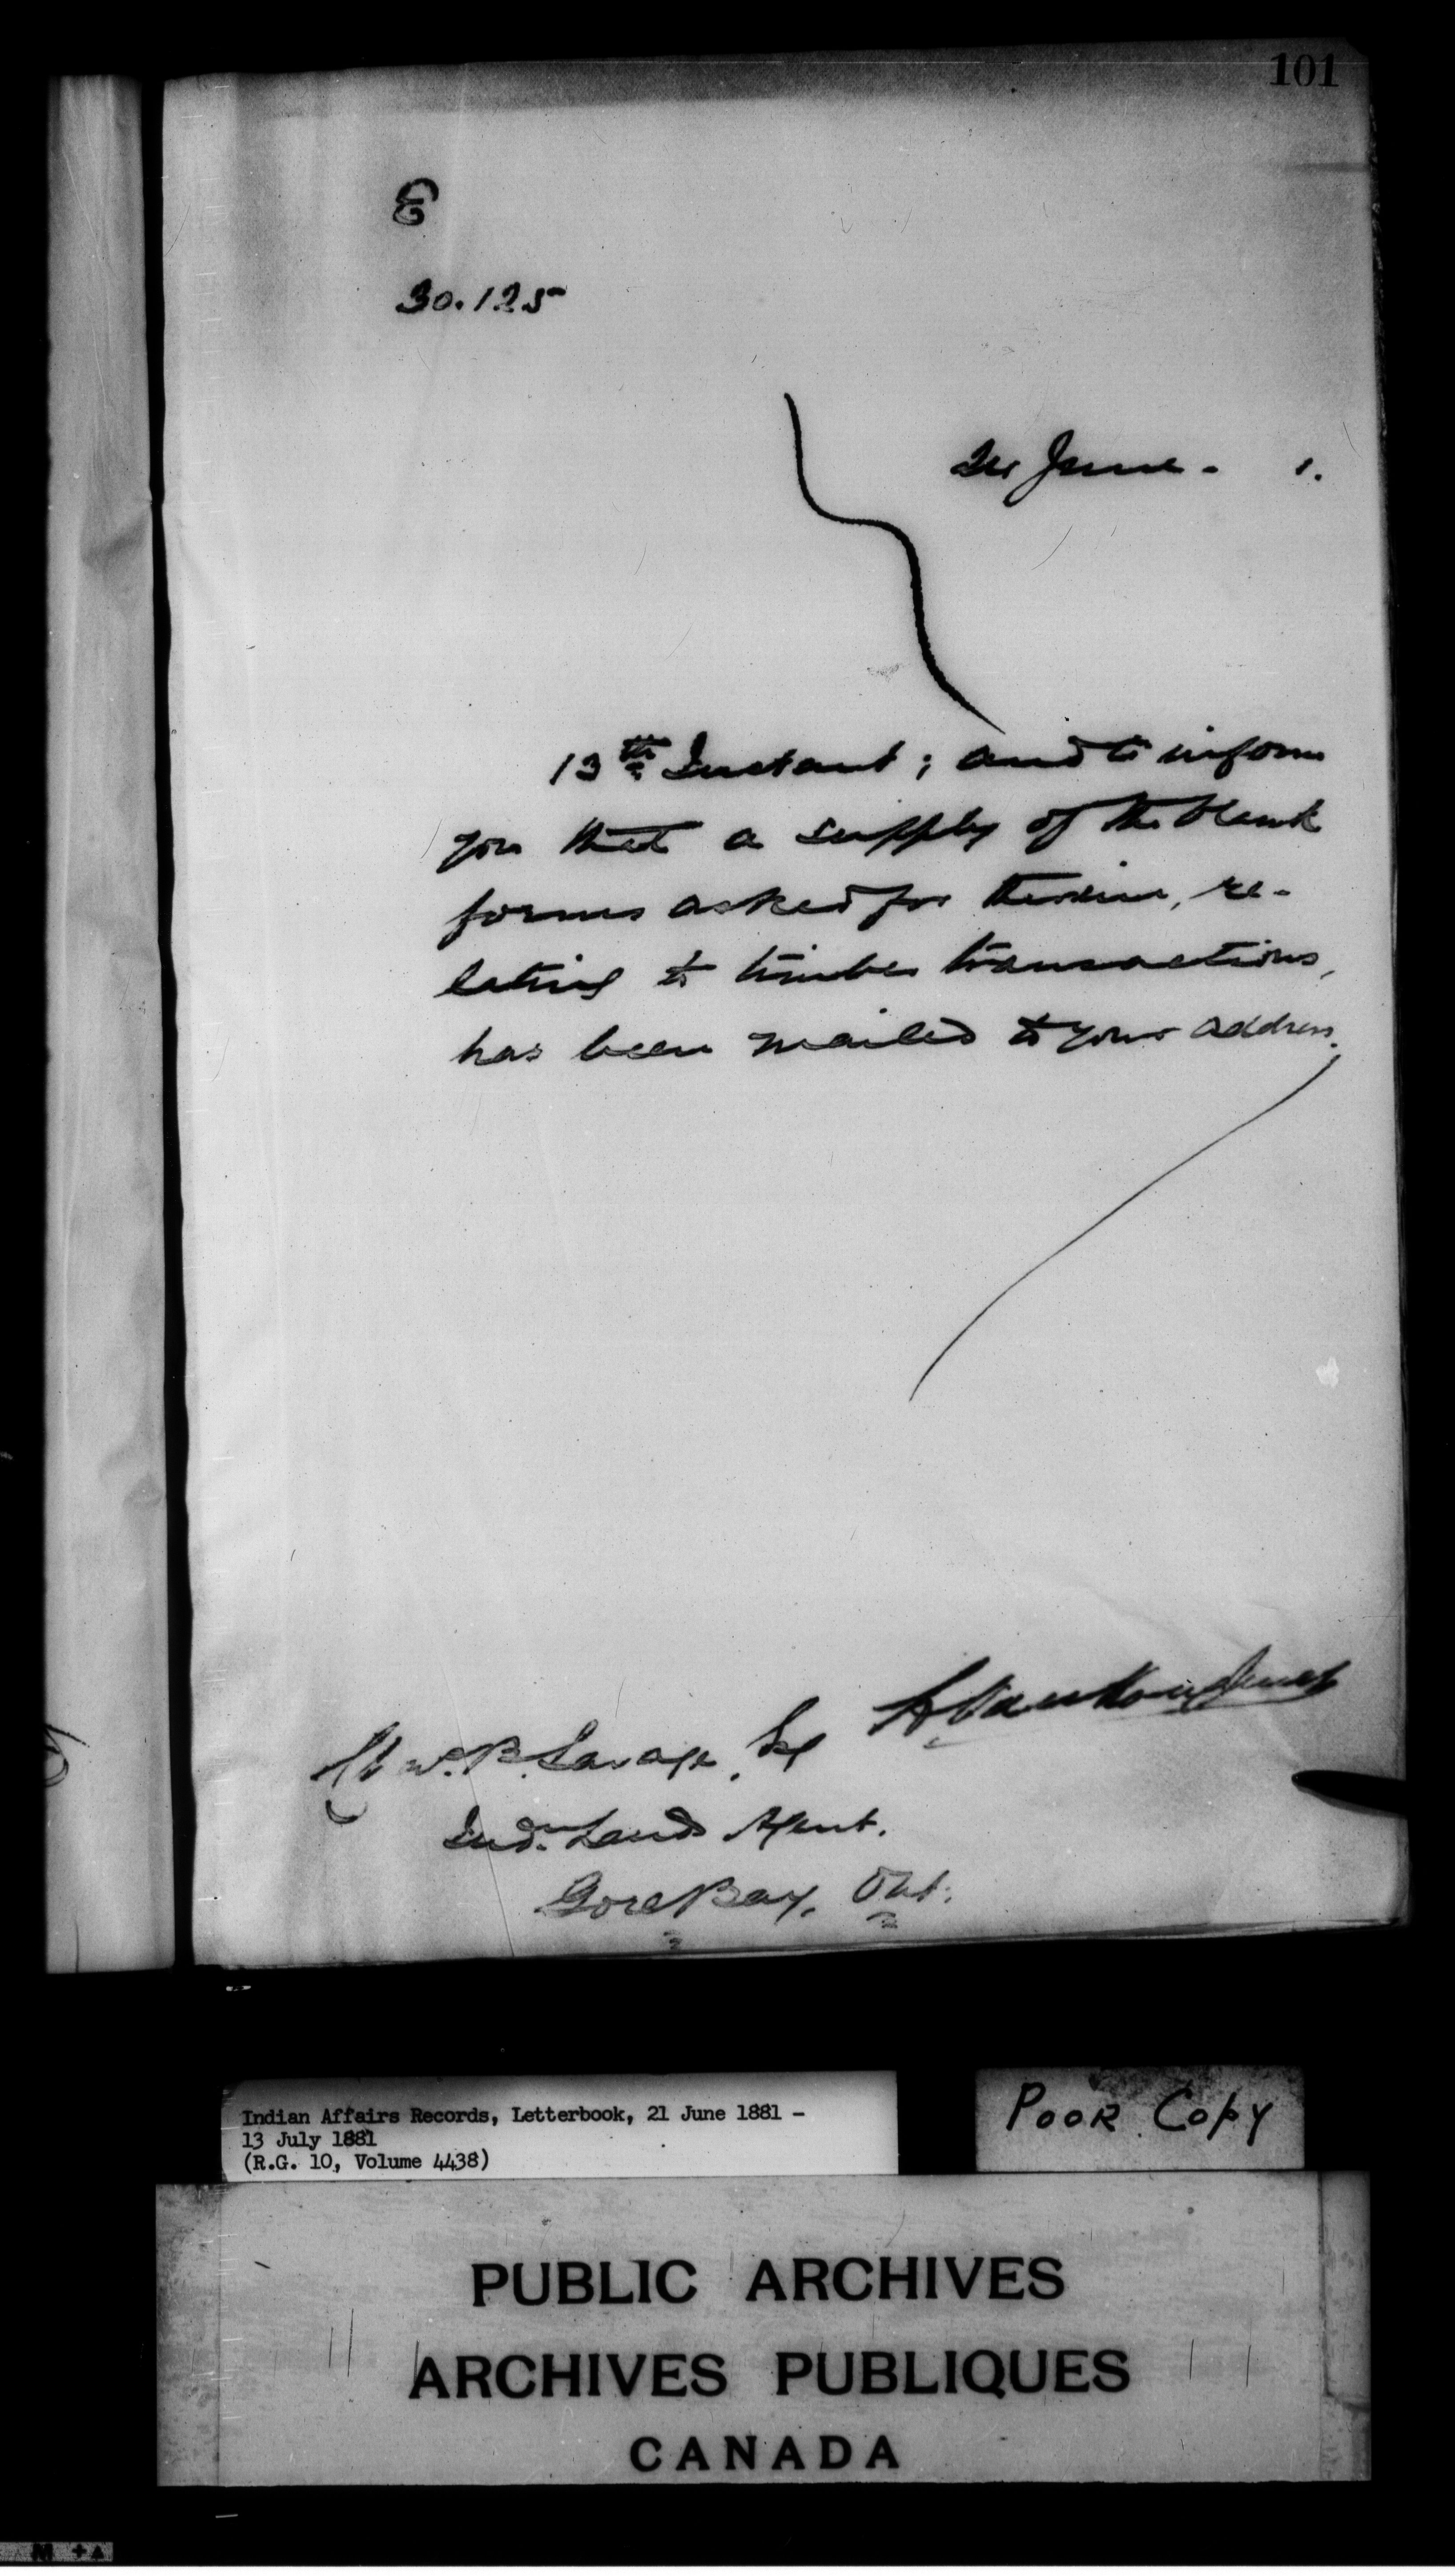 101
30.125
June - 1.
13th Instant; and to inform
you that a supply of the blank
forms asked for therein, re-
lating to timber transactions,
has been mailed to your address.
L Vankoughnet
W. B. Savage, Esq
Indn Land Agent.
Gore Bay, Ont.
Indian Affairs Records, Letterbook, 21 June 1881 -
13 July 1881
(R.G. 10, Volume 4438)
POOR COPY
PUBLIC ARCHIVES
ARCHIVES PUBLIQUES
CANADA